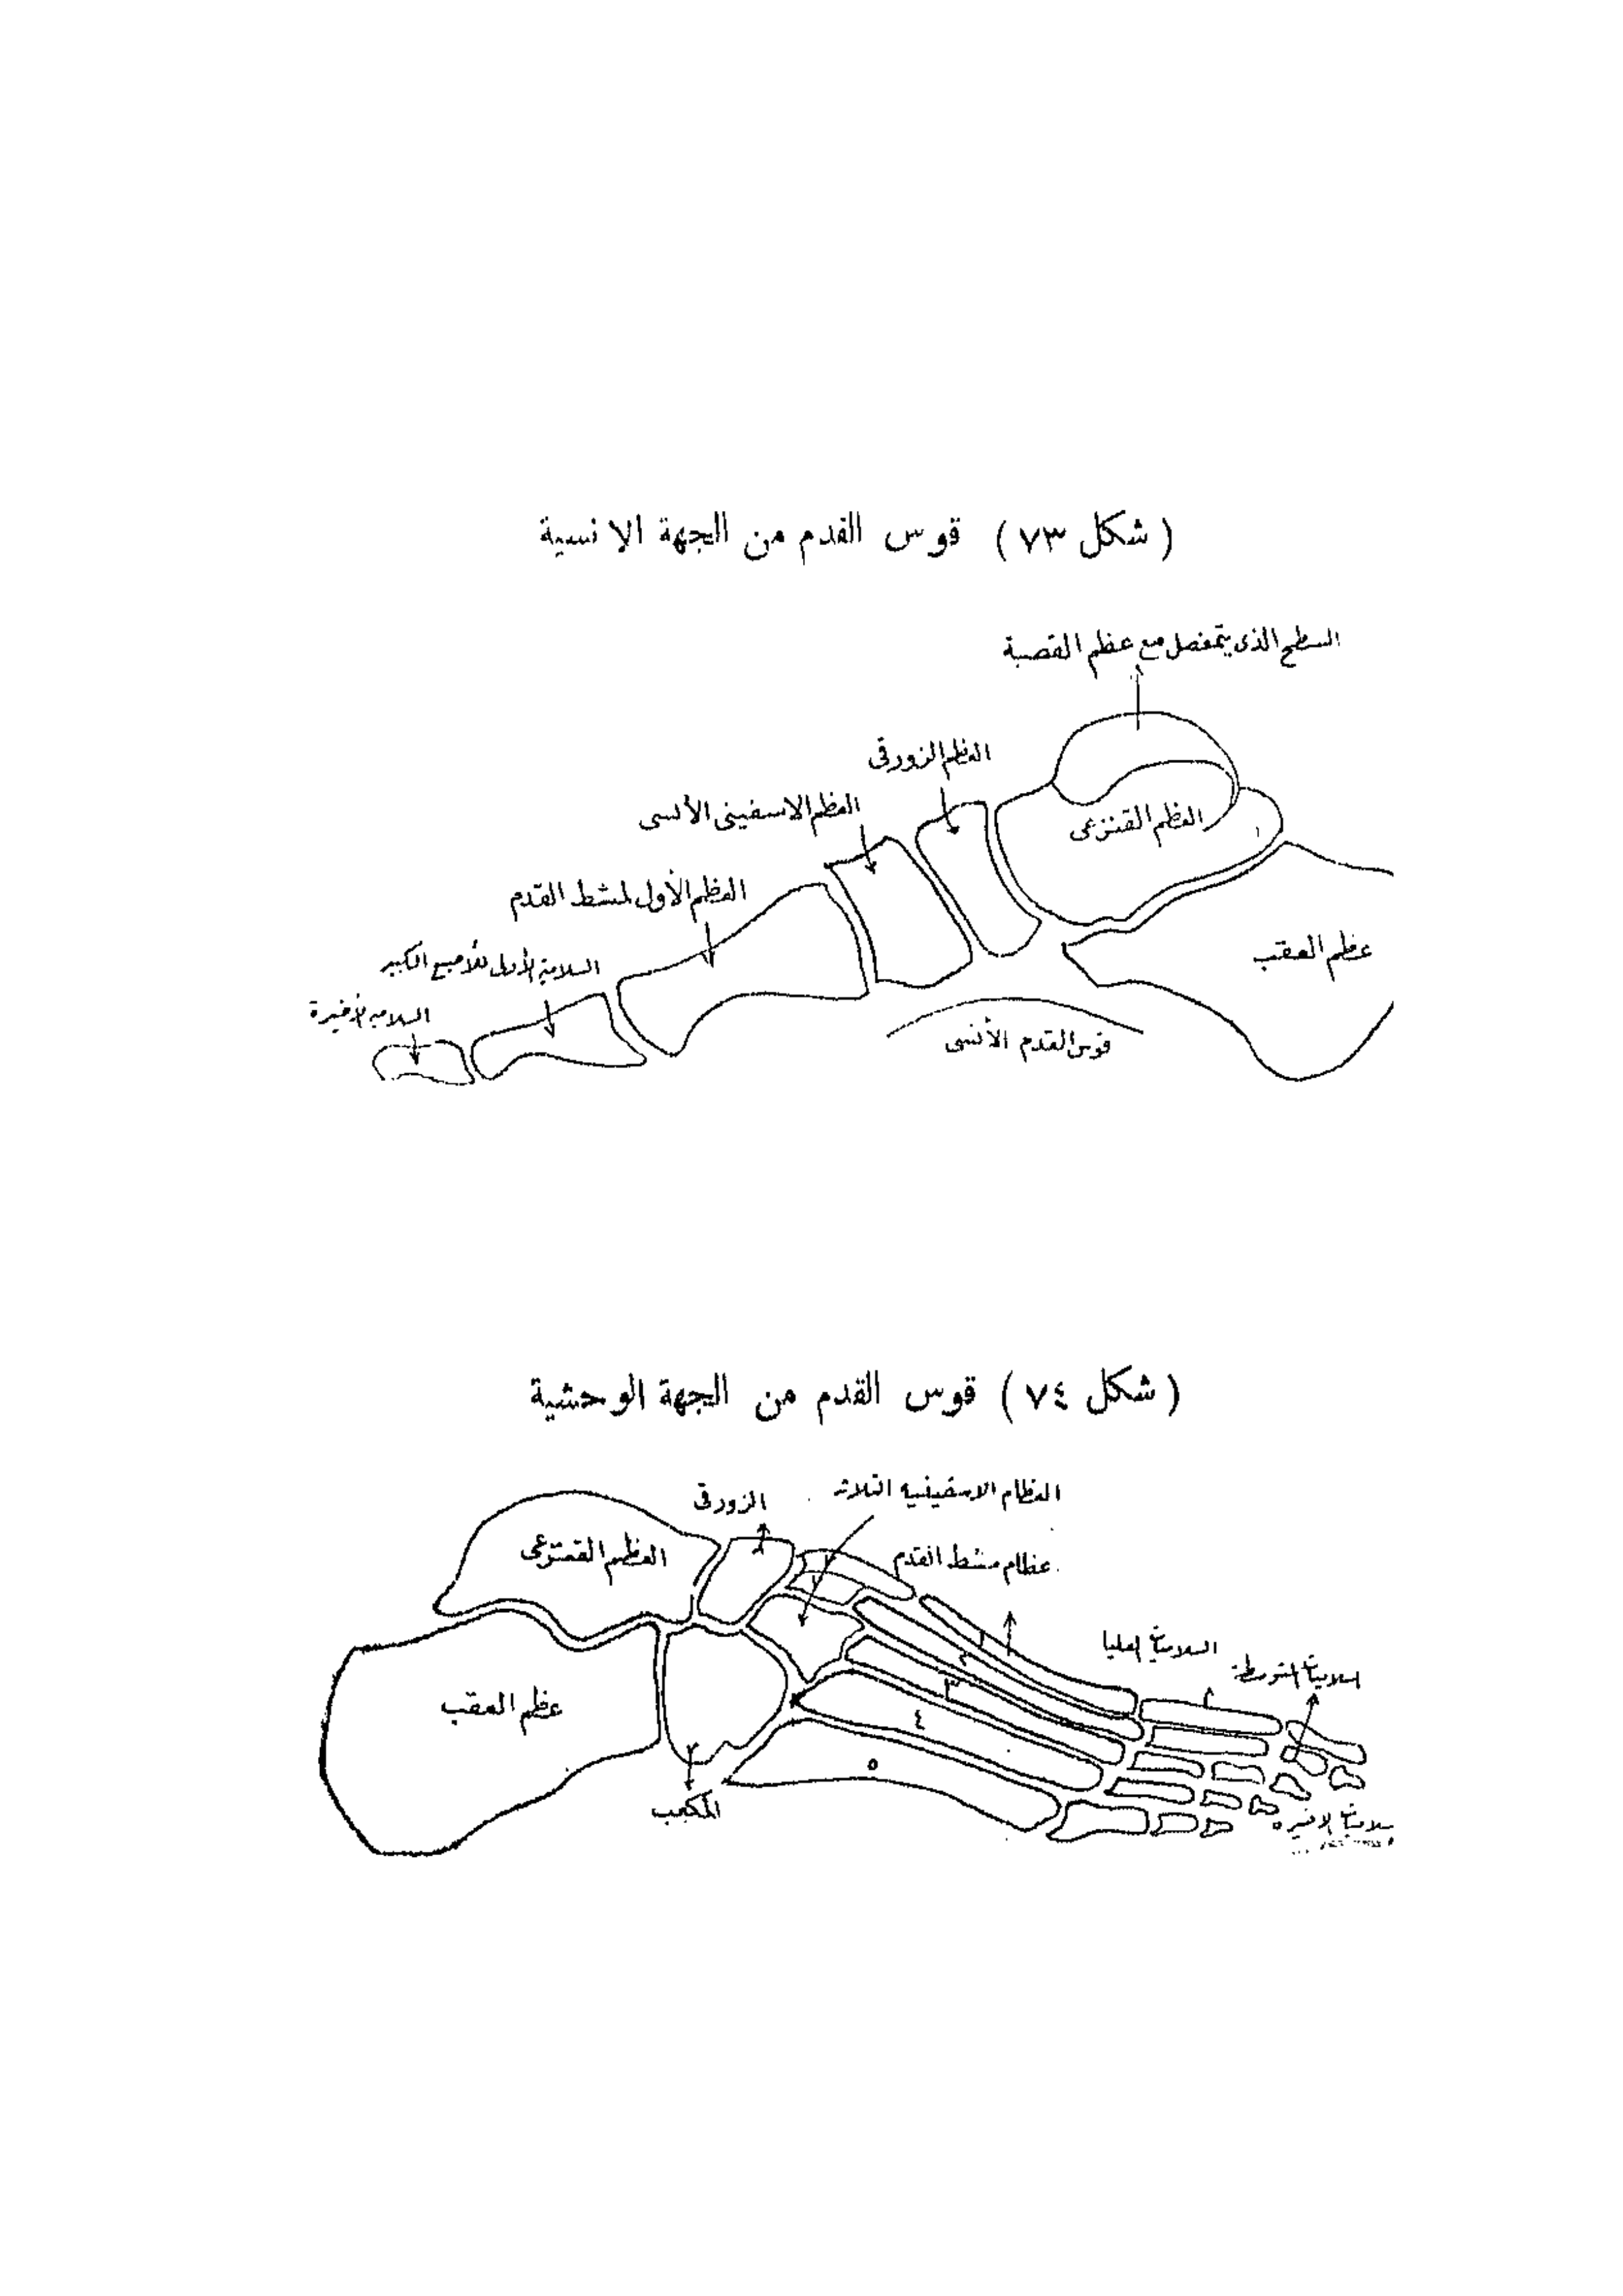 ( شكل ٧٣ ) قوس القدم من الجهة الانسية
السطح الذى يتمفصل مع عظم القصبة
العظم الزورقى
العظم القنزعى
العظم الاسفينى الأنسى
العظم الأول لمشط القدم
عظم العقب
السلامية الأولى للأصبع الكبير
السلامية الأخيرة
قوس القدم الأنسى
( شكل ٧٤ ) قوس القدم من الجهة الوحشية
العظام الاسفينية الثلاث
الزورقى
العظم القنزعى
عظام مشط القدم
١
٢
١
السلاميات العليا
٢
السلاميات المتوسطة
٣
عظم العقب
٤
٥
المكعب
سلاميات الاخيرة